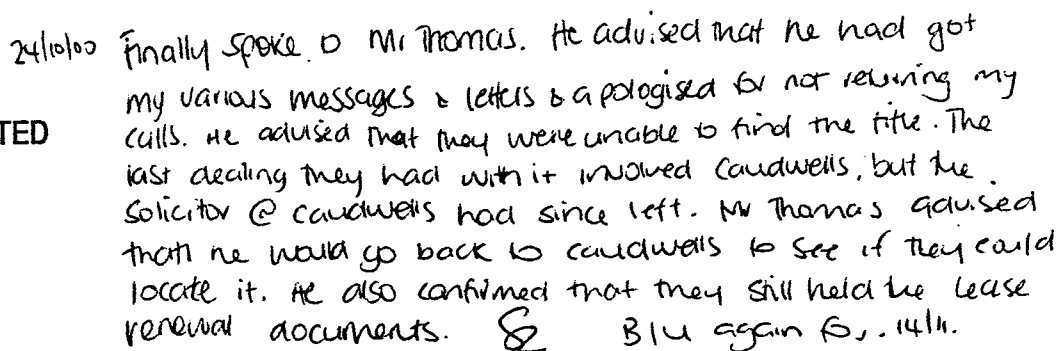 24/10/00 Finally spoke to Mr Thomas. He advised that he had got
my various messages & letters & apologised for not returning my
TED calls. He advised that they were unable to find the title. The
last dealing they had with it involved Caudwells, but the
Solicitor @ caudwells had since left. Mr Thomas advised
that he would go back to caudwells to see if they could
locate it. He also confirmed that they still held the lease
renewal documents. B/u again 14/11.